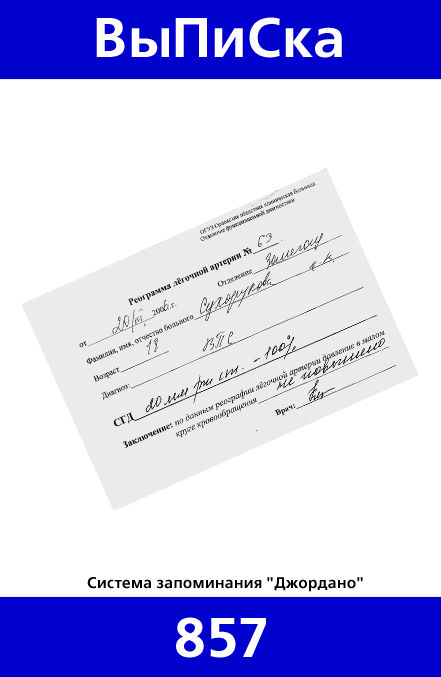 ВыПиСка
ОГУЗ Орловская областная клиническая больница
Отделение функциональной диагностики
Реограмма лёгочной артерии № 63
от 20/ 2006 г. Отделение
Фамилия, имя, отчество больного Сухорукова
Возраст 18
Диагноз: ВПС
СГД 20 мм рт ст. - 100%
Заключение: по данным реографии лёгочной артерии давление в малом
круге кровообращения не повышено
Врач:
Система запоминания "Джордано"
857